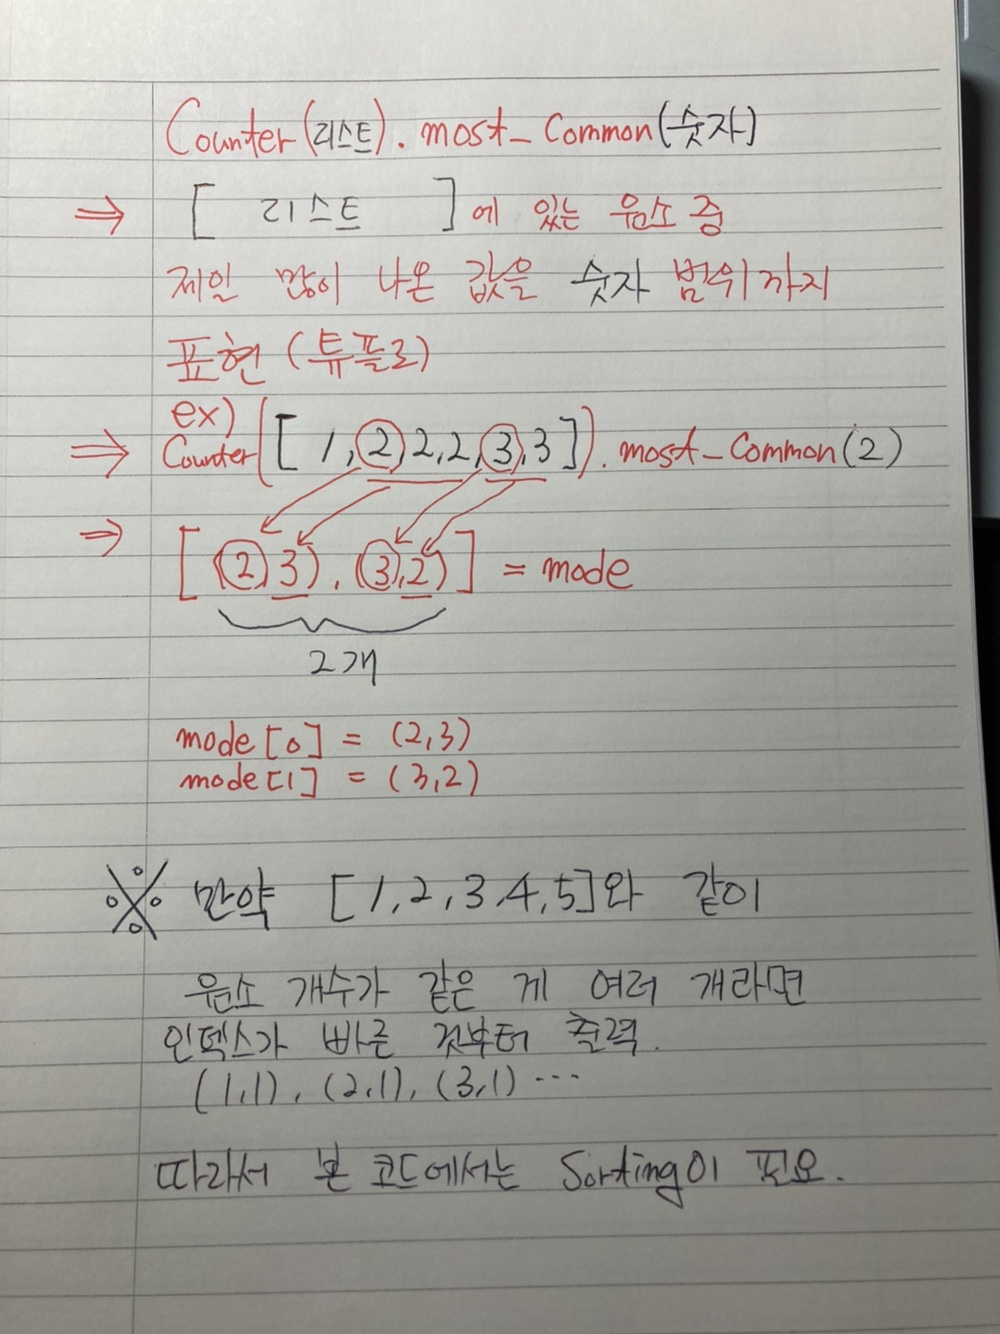 Counter(리스트).most_Common(숫자)
⇒ [ 리스트 ]에 있는 원소 중
제일 많이 나온 값을 숫자 범위까지
표현 (튜플로)
ex)
⇒ Counter([1,2,2,2,3,3]).most_Common(2)
⇒ [(2,3),(3,2)] = mode
2개
mode[0] = (2,3)
mode[1] = (3,2)
※ 만약 [1,2,3,4,5]와 같이
원소 개수가 같은 게 여러 개라면
인덱스가 빠른 것부터 출력.
(1,1), (2,1), (3,1) ⋯
따라서 본 코드에서는 Sorting이 필요.